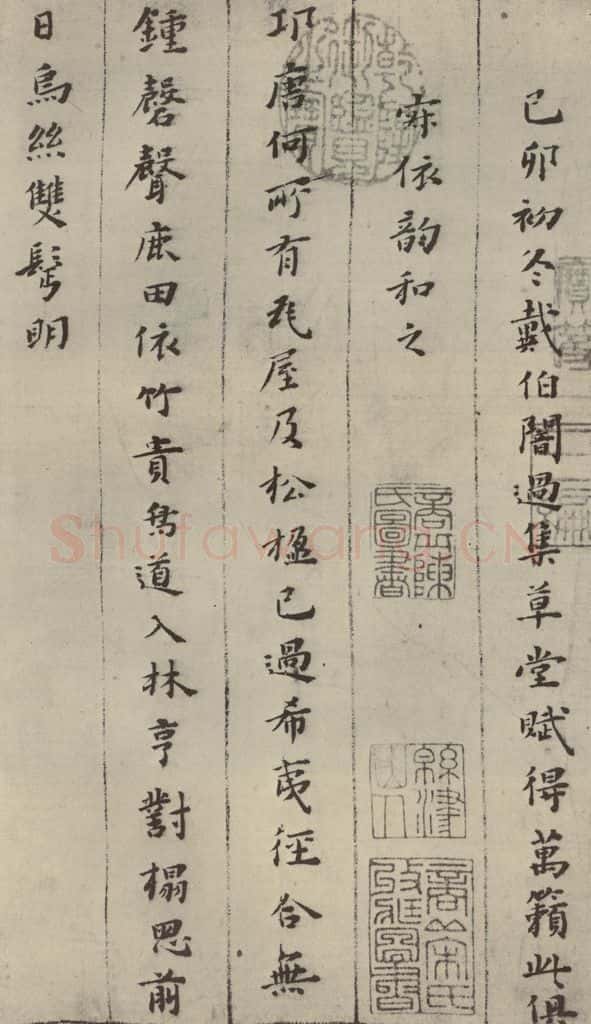 己卯初冬戴伯闇過集草堂賦得萬籟此俱
寂依韵和之
邛唐何所有瓦屋及松楹已過希夷徑合無
鍾磬聲鹿田依竹貴鳥道入林亨對榻思前
日烏絲雙鬢明
Shufawang.CN